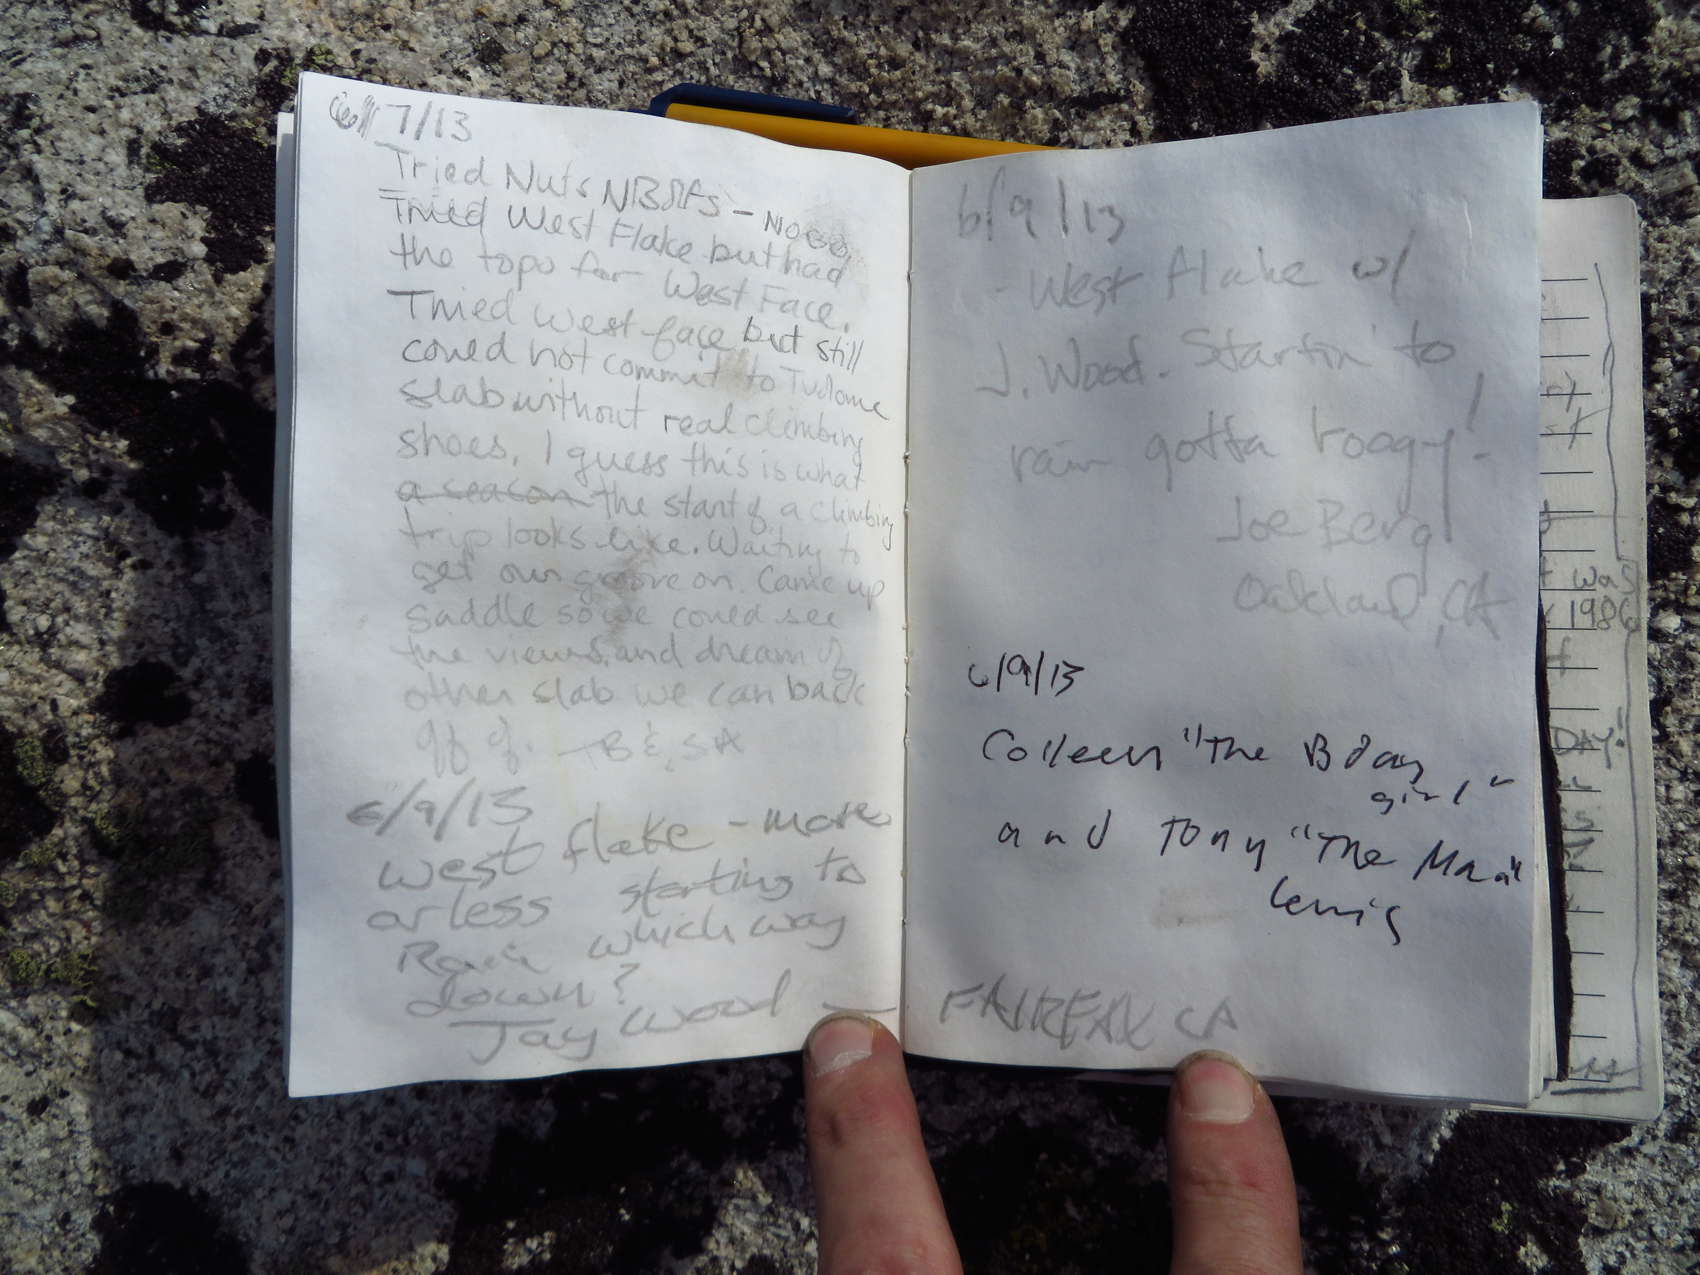 6/7/13
Tried Nuts - NO GO,
Tried West Flake but had
the topo for West Face.
Tried West face but still
could not commit to Tuolome
slab without real climbing
shoes. I guess this is what
a season the start of a climbing
trip looks like. Waiting to
get our groove on. Came up
saddle so we could see
the views and dream of
other slab we can back
off of.
6/9/13
West flake - more
or less starting to
Rain which way
down?
Jay Wood
6/9/13
- West flake w/
J. Wood. Startin' to
rain gotta
Joe Berg
Oakland, CA
6/9/13
Colleen "The Bday
girl"
and Tony "The Man"
Lewis
FAIRFAX CA
was
1986